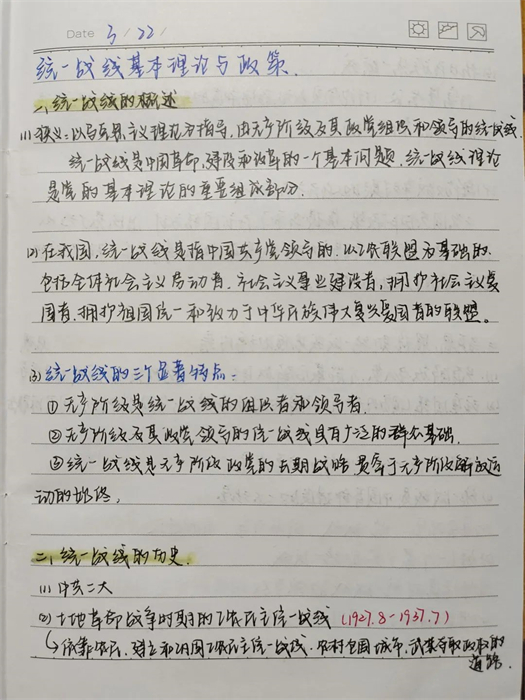 Date 3/22/
统一战线基本理论与政策.
一、统一战线的概述
(1) 狭义:以马克思主义理论为指导,由无产阶级及其政党组织和领导的统一战线.
统一战线是中国革命、建设和改革的一个基本问题,统一战线理论
是党的基本理论的重要组成部分.
(2) 在我国,统一战线是指中国共产党领导的.以工农联盟为基础的.
包括全体社会主义劳动者,社会主义事业建设者,拥护社会主义爱
国者.拥护祖国统一和致力于中华民族伟大复兴爱国者的联盟。
(3) 统一战线的三个显著特点:
① 无产阶级是统一战线的组织者和领导者.
② 无产阶级及其政党领导的统一战线具有广泛的群众基础.
③ 统一战线是无产阶级政党的长期战略 贯穿于无产阶级解放运
动的始终。
二、统一战线的历史.
(1) 中共二大
(2) 土地革命战争时期的工农民主统一战线 (1927.8-1937.7)
↳依靠农民.建立和巩固工农民主统一战线.农村包围城市,武装夺取政权的
道路.